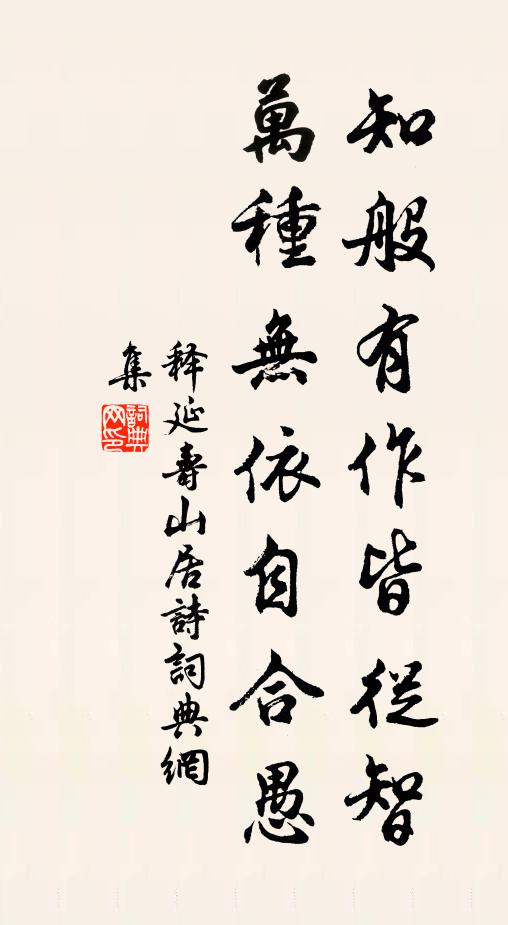 知般有作皆從智
萬種無依自合愚
釋延壽山居詩詞典網
集
詞典網印